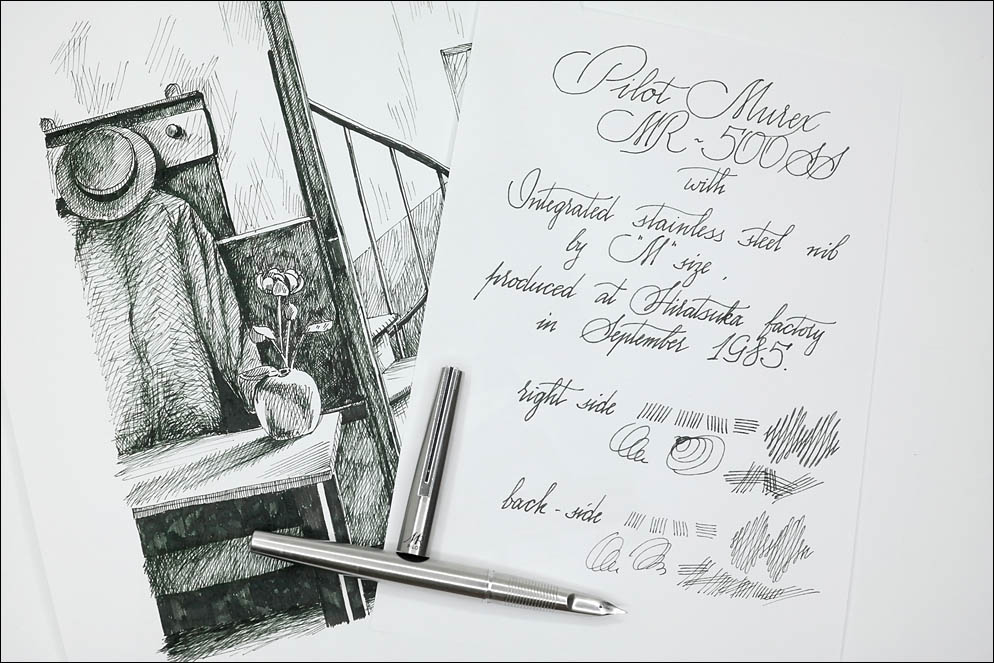 Pilot Murex
MR-500SS
with
Integrated stainless steel nib
by "M" size,
produced at Hiratsuka factory
in September 1985.
right side
back-side